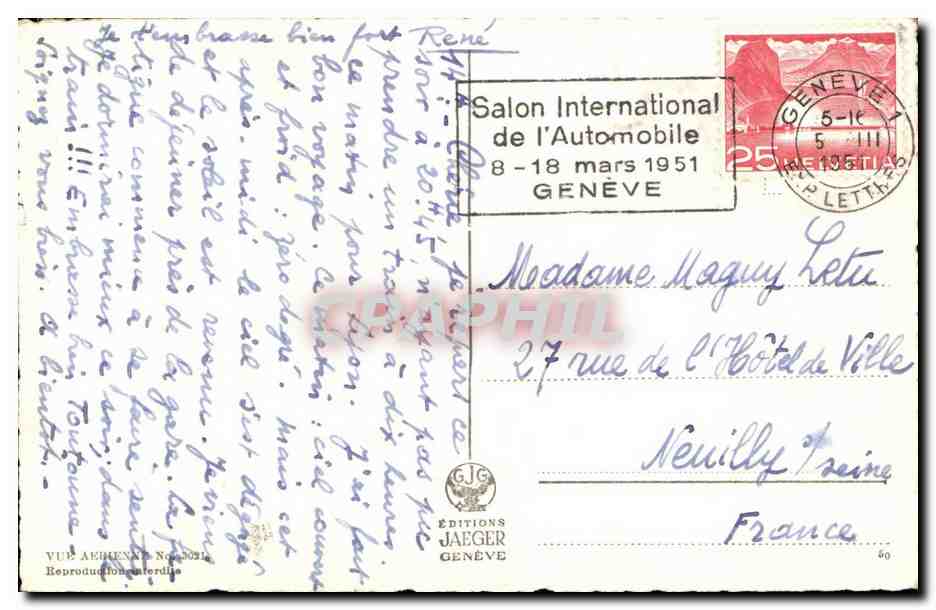 14 h. Chérie, je repars ce
soir à 20 H 45 n'ayant pas pu
prendre un train à dix heures
ce matin pour Lyon. J'ai fait
bon voyage. Ce matin : ciel couvert
et froid : zéro degré. mais cet
après-midi le ciel s'est dégagé
et le soleil est revenu. Je viens
de déjeuner près de la gare. La fa-
tigue commence à se faire sentir
Je dormirai mieux ce soir, dans le
train !!! Embrasse bien Toutoune.
Soignez vous bien. à bientôt. -
Je t'embrasse bien fort René
Salon International
de l'Automobile
8 - 18 mars 1951
GENÈVE
GENÈVE 1
5-III
1951
EXP. LETTRES
25 HELVETIA
Madame Maguy Letu
27 rue de l'Hôtel de Ville
Neuilly s/ seine
France
CPAPHIL
GJG
ÉDITIONS
JAEGER
GENÈVE
VUE AERIENNE No. 3021
Reproduction interdite
50